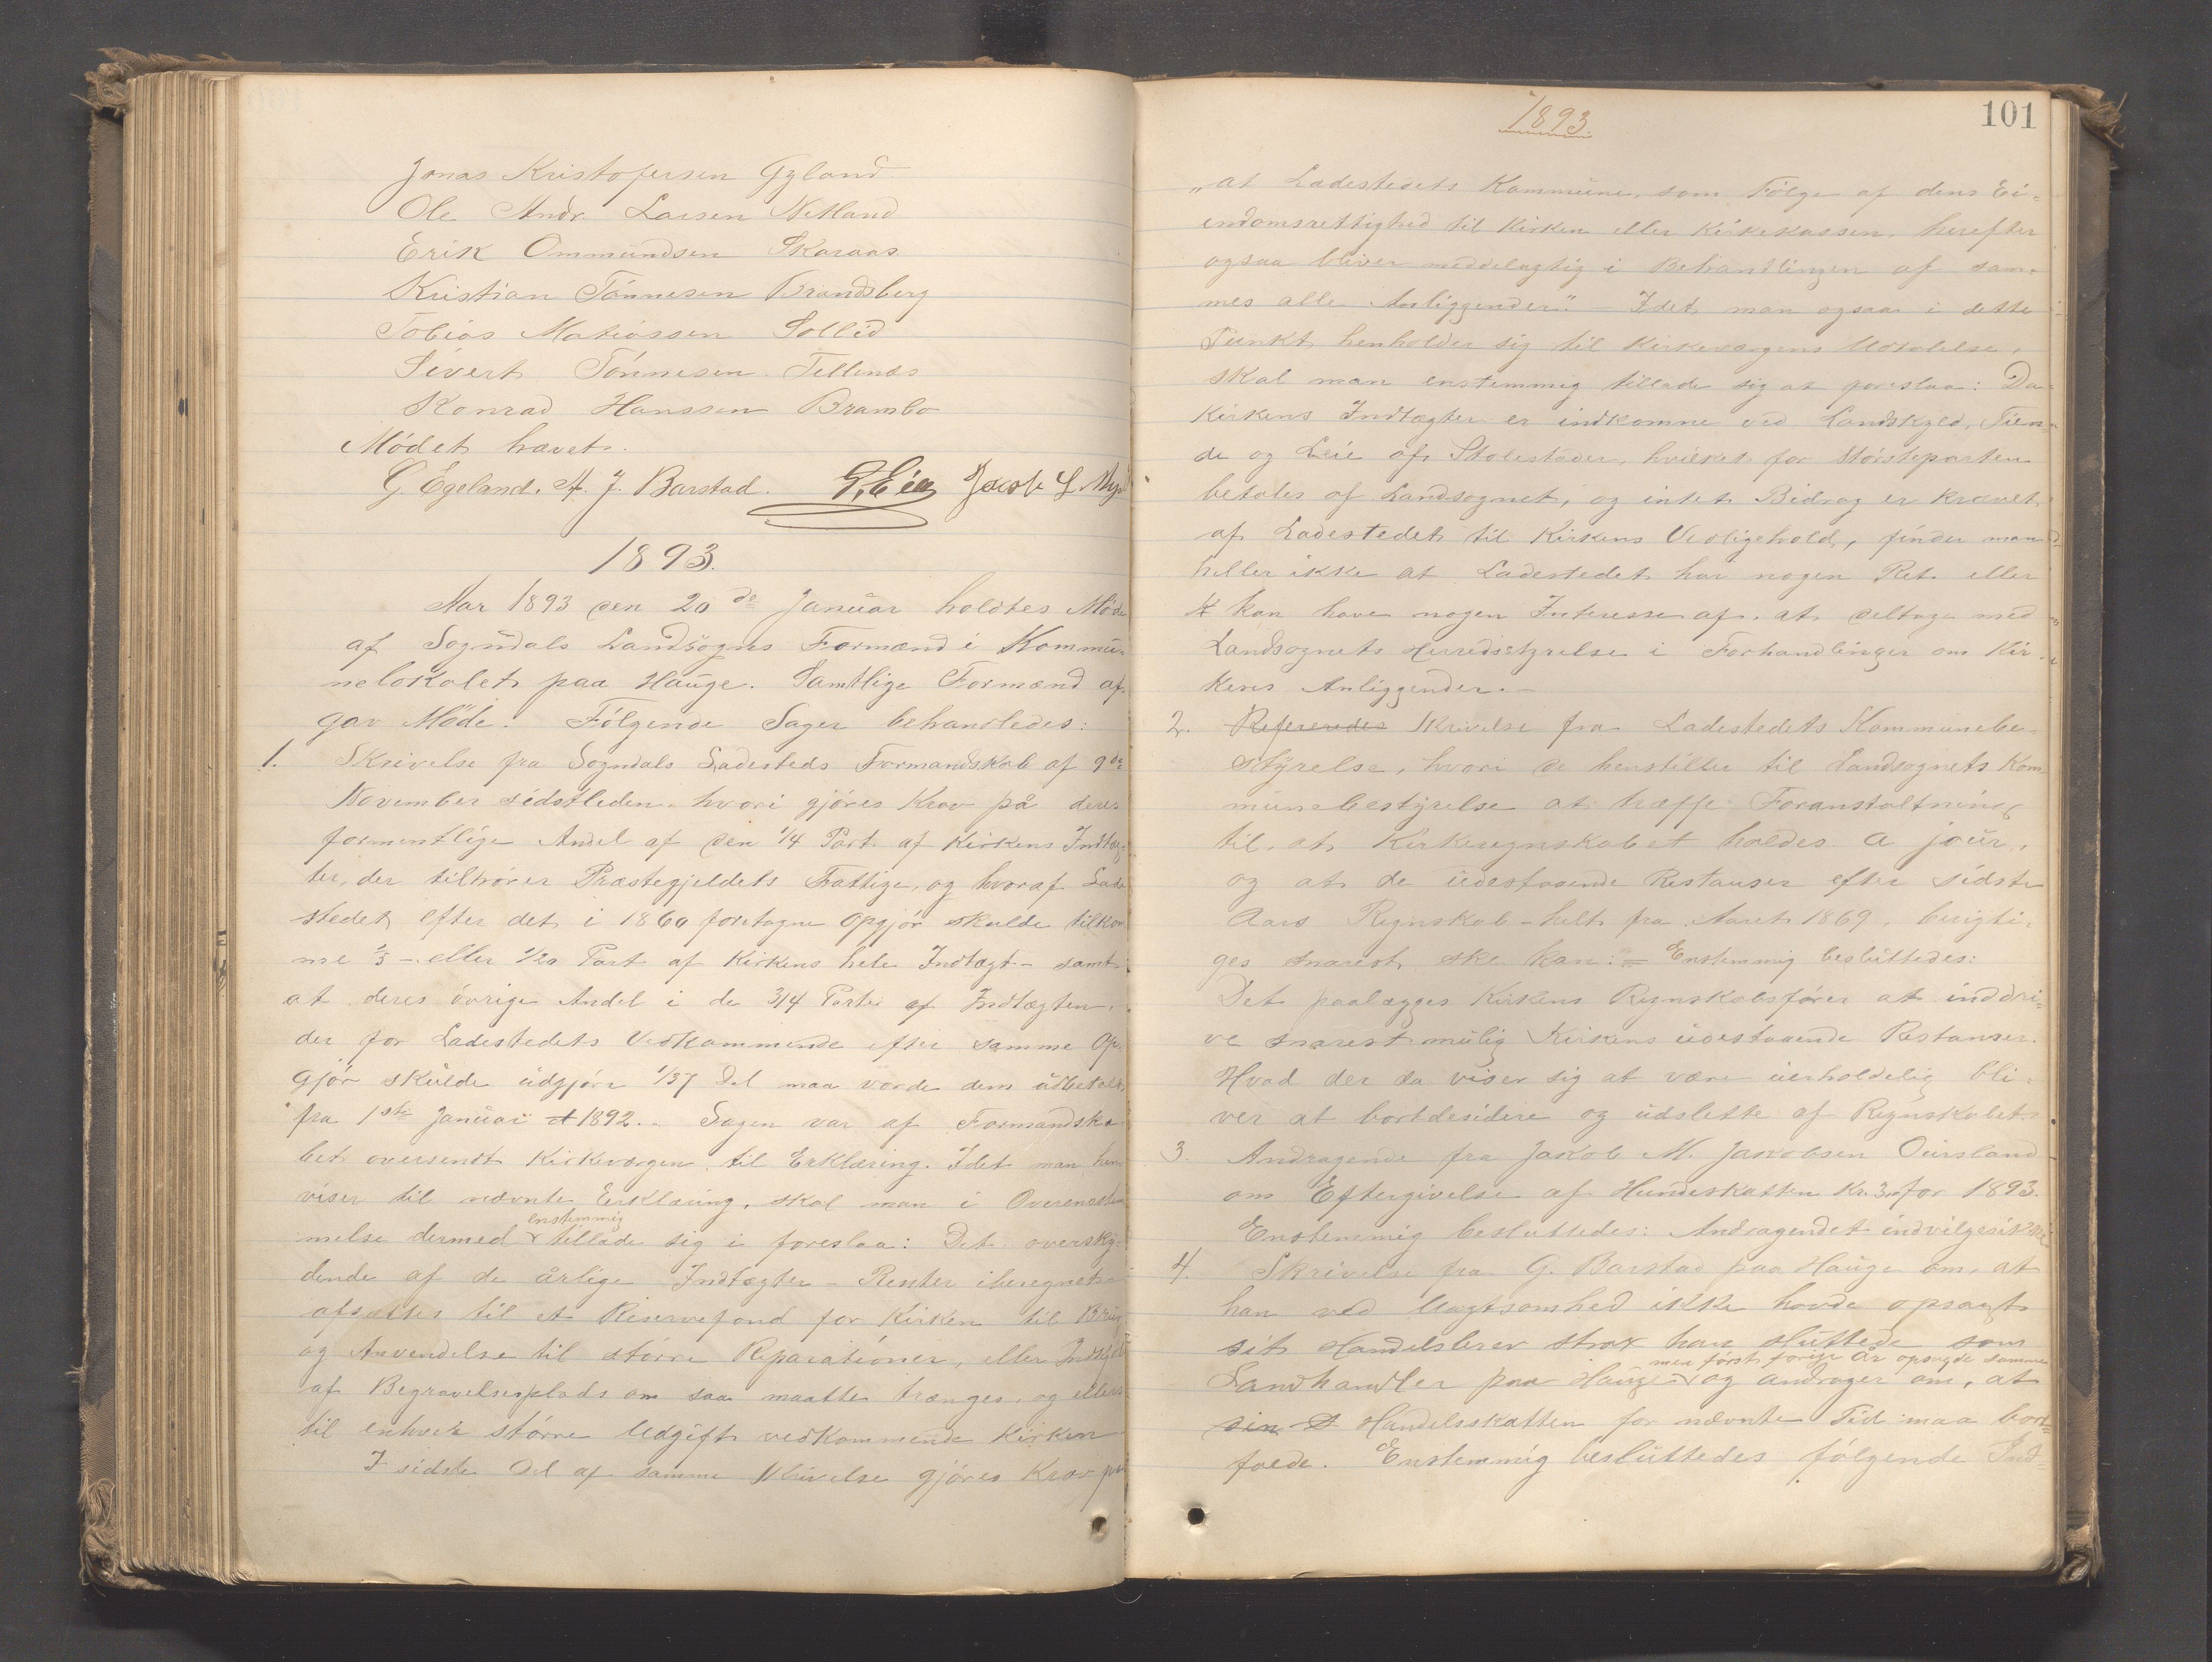 Jonas Kristofersen Gyland
Ole Andr. Larsen Netland
Erik Ommundsen Skaraas
Kristian Tönnesen Brandsberg
Tobias Matiassen Sollid
Sivert Tönnesen Tellenes
Konrad Hanssen Brambo
Mödet hævet.
G. Egeland. A. J. Barstad. Jacob L. Myd
1893.
Aar 1893 den 20de Januar holdtes Möde
af Sogndals Landsogns Formænd i Kommu-
nelokalet paa Hauge. Samtlige Formænd af-
gav Möde. Fölgende Sager behandledes:
1. Skrivelse fra Sogndals Ladesteds Formandskab af 9de
November sidstleden, hvori gjöres Krav på deres
formentlige Andel af den 1/4 Part af Kirkens Indtæg-
ter, der tilhörer Præstegjeldets Fattige, og hvoraf Lade-
stedet efter det i 1860 foretagne Opgjör skulde tilkom
me 1/5 - eller 1/20 Part af Kirkens hele Indtægt - samt
at deres övrige Andel i de 3/4 Parter af Indtægten,
der for Ladestedets Vedkommende efter samme Op-
gjör skulde udgjöre 1/37 Del maa vorde dem udbetalt
fra 1ste Januar 1892. Sagen var af Formandska-
bet oversendt Kirkeværgen til Erklæring. Idet man hen
viser til nævnte Erklæring, skal man i Overenstem
enstemmig
melse dermed tillade sig i foreslaa: Det oversky-
dende af de årlige Indtægter - Renter iberegnet
afsættes til et Reservefond for Kirken til Brug
og Anvendelse til större Reparationer, eller Indkjöb
af Begravelsesplads om saa maatte trænges, og ellers
til enhver större Udgift vedkommende Kirken
I sidste Del af samme Skrivelse gjöres Krav paa
1893.
101
„at Ladestedets Kommune, som Fölge af dens Ei-
endomsrettighed til Kirken eller Kirkekassen, herefter
ogsaa bliver meddelagtig i Behandlingen af sam-
mes alle Anliggender." - Idet man ogsaa i dette
Punkt henholder sig til Kirkeværgens Udtalelse,
skal man enstemmig tillade sig at foreslaa: Da
Kirkens Indtægter er indkomne ved Landskyld, Tien-
de og Leie af Stolestader, hvilket for Störsteparten
betales af Landsognet, og intet Bidrag er krævet
af Ladestedet til Kirkens Vedligehold, finder man
heller ikke at Ladestedet har nogen Ret eller
kan have nogen Interesse af, at deltage med
Landsognets Herredsstyrelse i Forhandlinger om Kir-
kens Anliggender. -
2. Refereredes Skrivelse fra Ladestedets Kommunebe-
styrelse, hvori de henstiller til Landsognets Kom
munebestyrelse at træffe Foranstaltning
til, at Kirkeregnskabet holdes a jour,
og at de udestaaende Restanser efter sidste
Aars Regnskab - helt fra Aaret 1869, berigti-
ges snarest ske kan: = Enstemmig besluttedes:
Det paalægges Kirkens Regnskabsförer at inddri-
ve snarest mulig Kirkens udestaaende Restanser.
Hvad der da viser sig at være uerholdelig bli-
ver at bortdesidere og udslette af Regnskabet.
3. Andragende fra Jakob M. Jakobsen Oursland
om Eftergivelse af Hundeskatten Kr. 3,00 for 1893.
Enstemmig besluttedes: Andragendet indvilges ikke
4. Skrivelse fra G. Barstad paa Hauge om, at
han ved Uagtsomhed ikke havde opsagt
sit Handelsbrev strax han sluttede som
men först forige År opsagde samme
Landhandler paa Hauge og andrager om, at
sin Handelsskatten for nævnte Tid maa bort-
falde. Enstemmig besluttedes fölgende Ind-